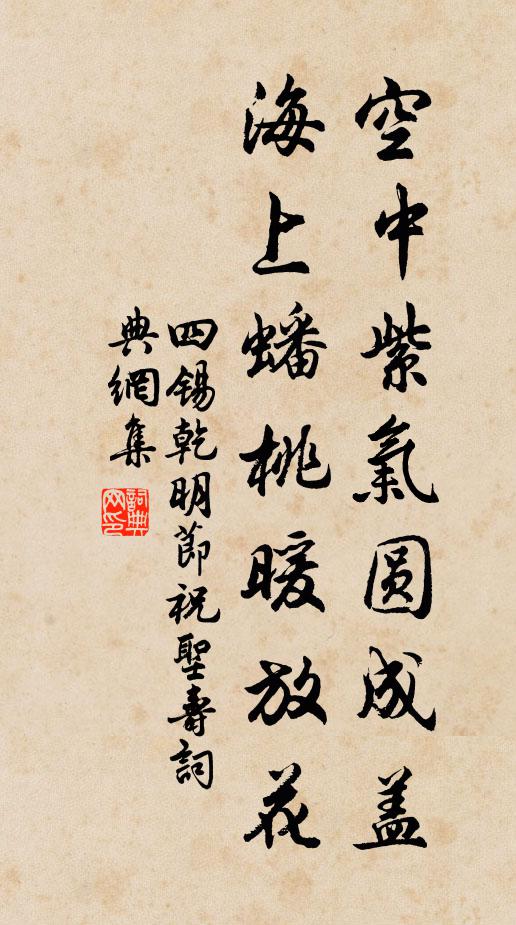 空中紫氣圆成盖
海上蟠桃暖放花
四锡乾明節祝聖壽詞
典網集
詞典網印